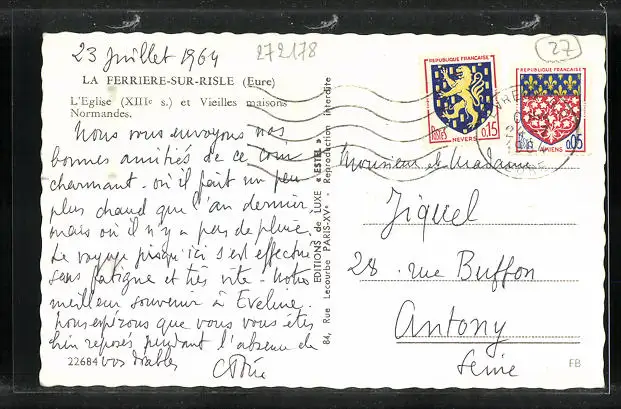 23 Juillet 1964
272178
27
LA FERRIERE-SUR-RISLE (Eure)
L'Eglise (XIIIe s.) et Vieilles maisons
Normandes.
Nous vous envoyons nos
bonnes amitiés de ce coin
charmant - où il fait un peu
plus chaud que l'an dernier
mais où il n'y a pas de pluie.
Le voyage jusqu'ici s'est effectué
sans fatigue et très vite - Notre
meilleur souvenir à Eveline.
nous espérons que vous vous êtes
bien reposés pendant l'absence de
vos diables
22684
EDITIONS de LUXE « ESTEL »
84, Rue Lecourbe PARIS-XVe - Reproduction interdite
REPUBLIQUE FRANÇAISE
POSTES
0,15
NEVERS
REPUBLIQUE FRANÇAISE
POSTES
0,05
AMIENS
Monsieur et Madame
Jiquel
28 . rue Buffon
Antony
Seine
FB